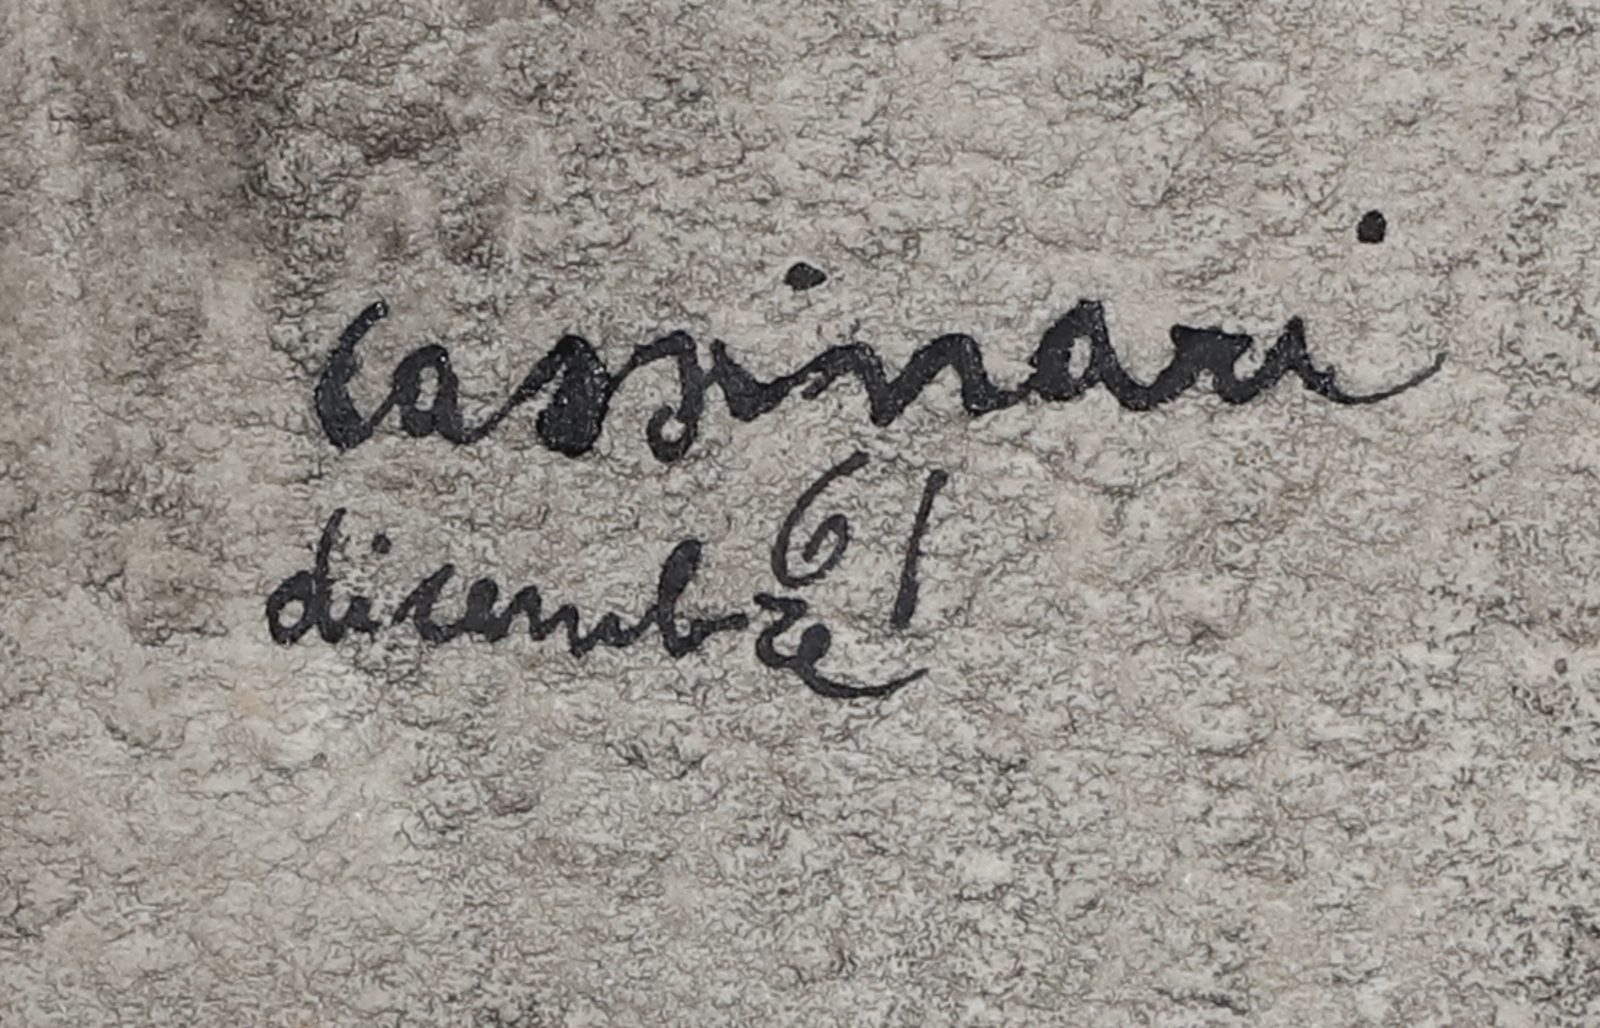 Cassinari
dicembre 61